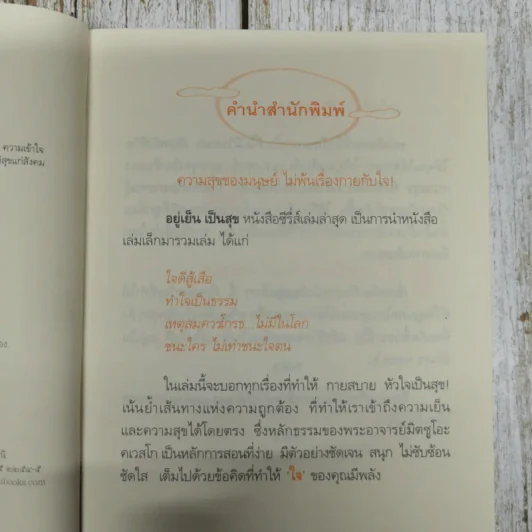 ความเข้าใจ
สุขแก่สังคม
คำนำสำนักพิมพ์
ความสุขของมนุษย์ ไม่พ้นเรื่องกายกับใจ!
อยู่เย็น เป็นสุข หนังสือซีรี่ส์เล่มล่าสุด เป็นการนำหนังสือ
เล่มเล็กมารวมเล่ม ได้แก่
ใจดีสู้เสือ
ทำใจเป็นธรรม
เหตุสมควรโกรธ...ไม่มีในโลก
ชนะใคร ไม่เท่าชนะใจตน
ในเล่มนี้จะบอกทุกเรื่องที่ทำให้ กายสบาย หัวใจเป็นสุข!
เน้นย้ำเส้นทางแห่งความถูกต้อง ที่ทำให้เราเข้าถึงความเย็น
และความสุขได้โดยตรง ซึ่งหลักธรรมของพระอาจารย์มิตซูโอะ
คเวสโก เป็นหลักการสอนที่ง่าย มีตัวอย่างชัดเจน สนุก ไม่ซับซ้อน
ชัดใส เต็มไปด้วยข้อคิดที่ทำให้ 'ใจ' ของคุณมีพลัง